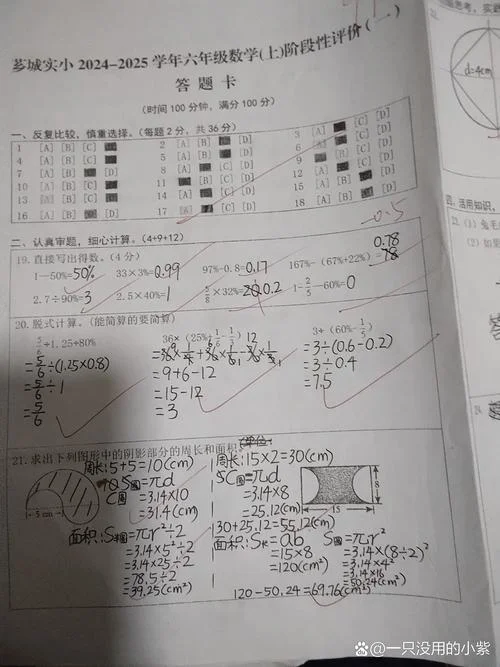 芗城实小2024-2025学年六年级数学(上)阶段性评价(一)
答题卡
(时间100分钟,满分100分)
一、反复比较,慎重选择。(每题2分,共36分)
1 [A] [B] [C] 2 [A] [B] [D] 3 [A] [C] [D]
4 [A] [B] [C] 5 [A] [B] [D] 6 [A] [C] [D]
7 [A] [B] [D] 8 [A] [C] [D] 9 [B] [C] [D]
10 [A] [B] [C] 11 [B] [C] [D] 12 [A] [B] [D]
13 [A] [B] [C] 14 [A] [B] [D] 15 [A] [B] [D]
16 [A] [B] [D] 17 [A] [C] [D] 18 [A] [B] [D]
-0.5
二、认真审题,细心计算。(4+9+12)
19.直接写出得数。(4分)
0.78
1-50%=50% 33×3%=0.99 97%-0.8=0.17 167%-(67%+22%)=
2.7÷90%=3 2.5×40%=1 5/8×32%=0.2 1-2/5-60%=0
20.脱式计算。(能简算的要简算)
5/6÷1.25÷80% 36×(25%+1/6-1/3) 3÷(60%-1/5)
=5/6÷(1.25×0.8) =36×1/4+36×1/6-36×1/3 =3÷(0.6-0.2)
=5/6÷1 =9+6-12 =3÷0.4
=5/6 =15-12 =7.5
=3
21.求出下列图形中的阴影部分的周长和面积。
周长:5+5=10(cm) 周长:15×2=30(cm)
C圆=πd C圆=πd
=3.14×10 =3.14×8
=31.4(cm) =25.12(cm)
5cm 15 8
30+25.12=55.12(cm)
面积:S半圆=πr²÷2 面积:S长=ab S圆=πr²
=3.14×5²÷2 =15×8 =3.14×(8÷2)²
=3.14×25÷2 =120(cm²) =3.14×4²
=78.5÷2 =3.14×16
=39.25(cm²) =50.24(cm²)
120-50.24=69.76(cm²)
d=4cm
四、活用知识,
(2)如果
@一只没用的小紫